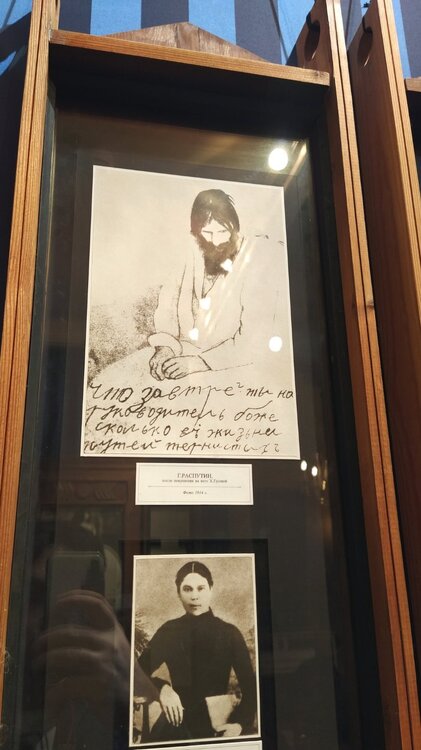 Что завтре? ты на
руководитель боже
сколько вӗ жизьни
путей тернистыхъ
Г.РАСПУТИН,
после покушения на него Х.Гусевой
Фото 1914 г.